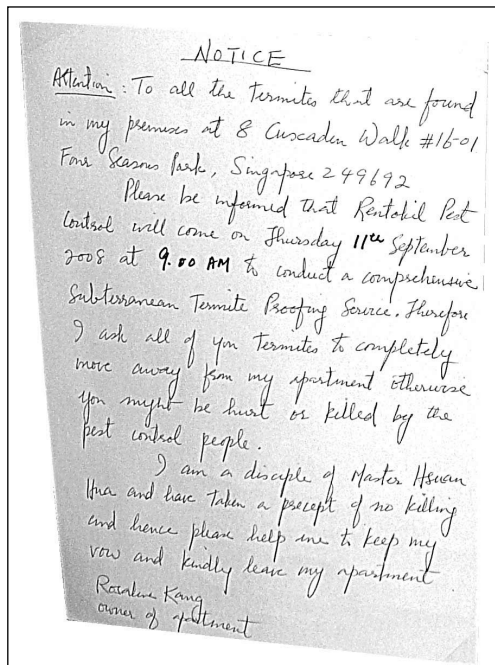 NOTICE
Attention: To all the Termites that are found
in my premises at 8 Cuscaden Walk #16-01
Four Seasons Park, Singapore 249692
Please be informed that Rentokil Pest
Control will come on Thursday 11th September
2008 at 9.00 AM to conduct a comprehensive
Subterranean Termite Proofing Service. Therefore
I ask all of you Termites to completely
move away from my apartment otherwise
you might be hurt or killed by the
pest control people.
I am a disciple of Master Hsuan
Hua and have taken a precept of no killing
and hence please help me to keep my
vow and kindly leave my apartment
Rosaline Kang
owner of apartment